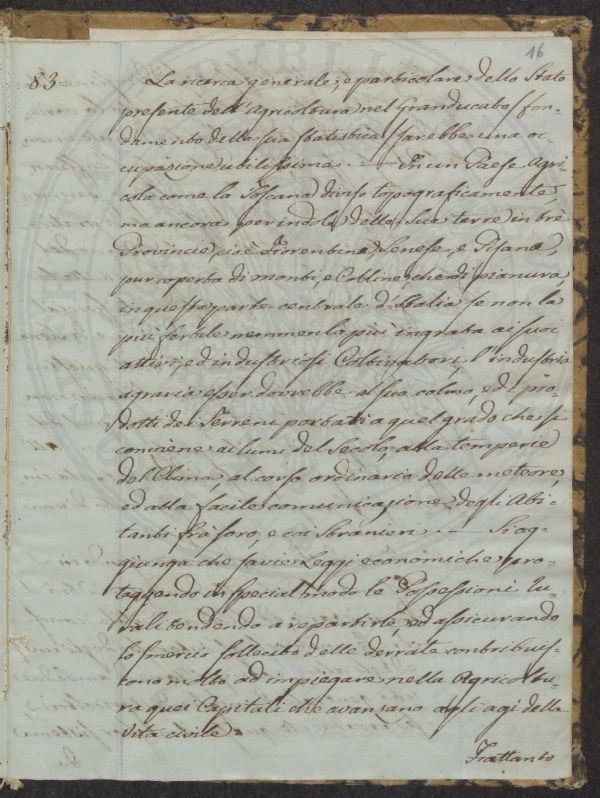 16
83
La ricerca generale, e particolare dello Stato
presente dell'Agricoltura nel Granducato (fon-
damento della sua statistica) sarebbe una oc-
cupazione utilissima. — In un Paese Agri-
cola come la Toscana diviso topograficamente,
ma ancora per indole delle sue terre in tre
Provincie, cioè Fiorentina, Senese, e Pisana,
più coperta di monti, e Colline, che di pianura,
in questa parte centrale d'Italia se non la
più fertile nemmen la più ingrata ai suoi
attivi, ed industriosi Coltivatori, l'industria
agraria esser dovrebbe al suo colmo, ed i pro-
dotti dei Terreni portati a quel grado che si
conviene ai lumi del Secolo, alla temperie
del Clima al corso ordinario delle meteore,
ed alla facile comunicazione degli Abi-
tanti frà loro, e coi Stranieri. — Si ag-
giunga che savie Leggi economiche pro-
teggendo in special modo le Possessioni Ru-
rali tendendo a repartirle, ed assicurando
lo smercio sollecito delle derrate contribuis-
cono molto ad impiegare nella Agricoltu-
ra quei Capitali che avanzano agli agi della
vita civile.
Trattanto